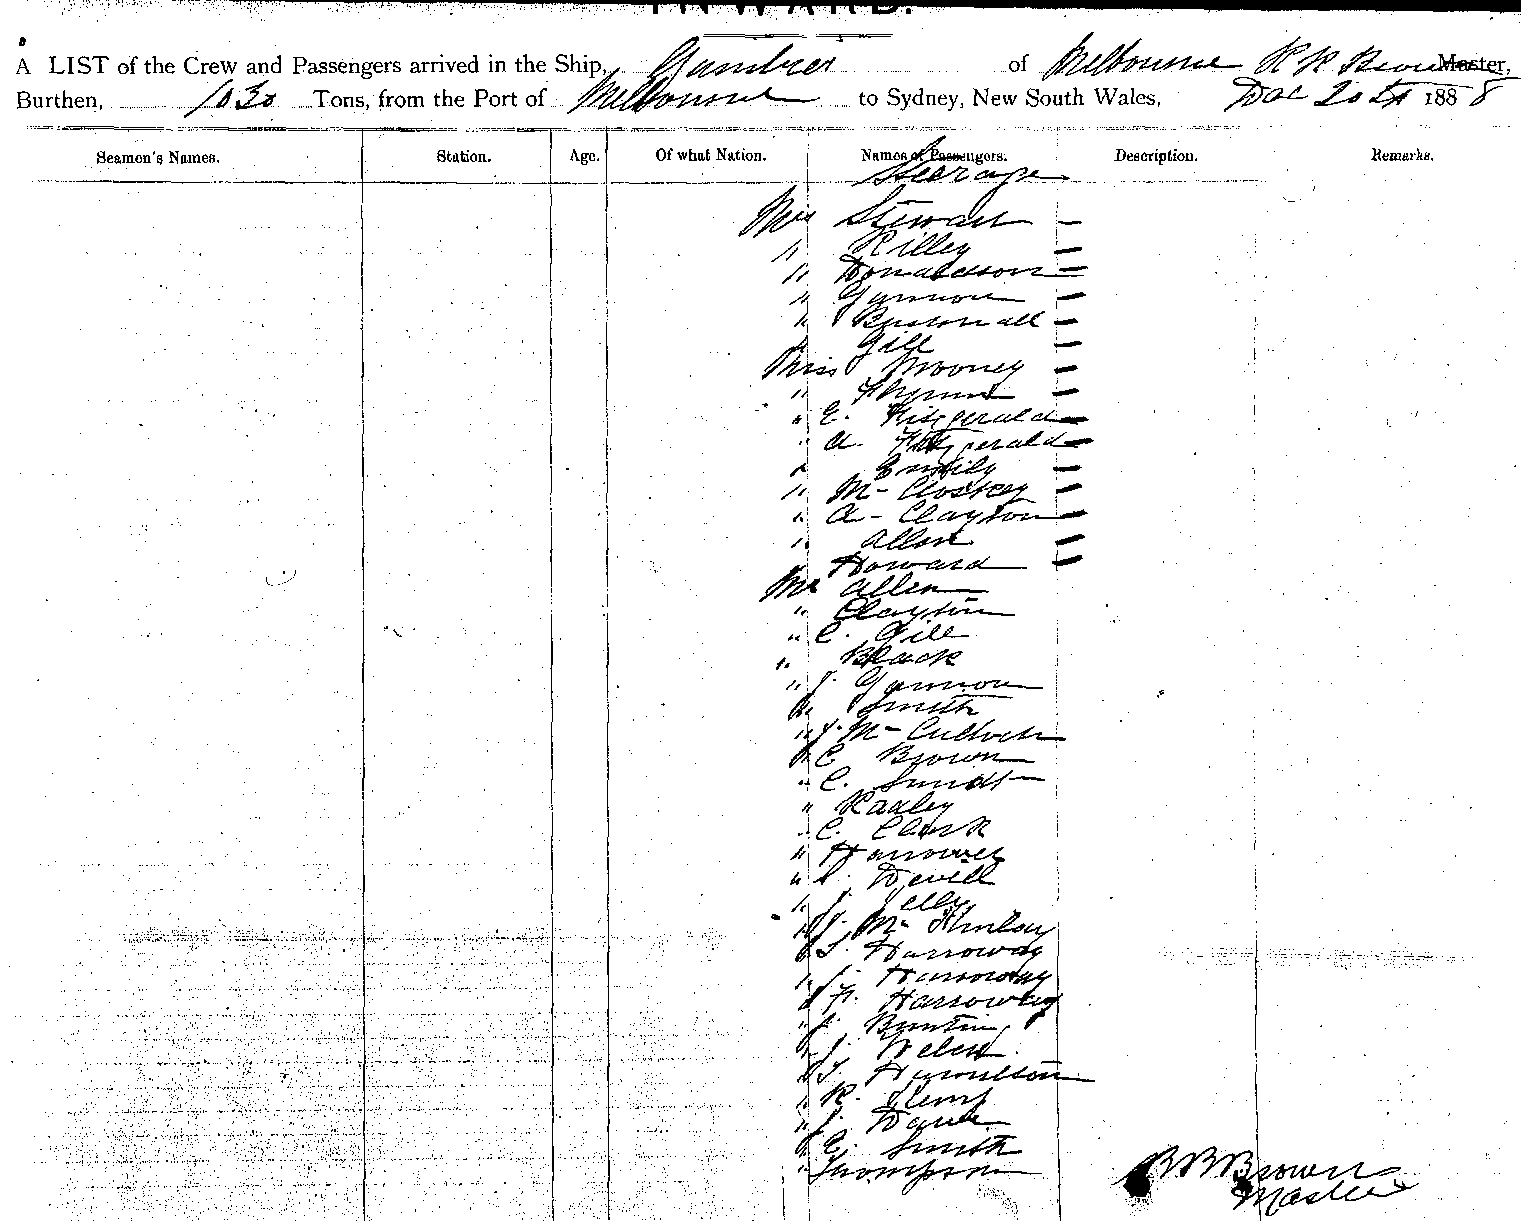 INWARD.
A LIST of the Crew and Passengers arrived in the Ship, Gambier of Melbourne R R Brown Master,
Burthen, 1030 Tons, from the Port of Melbourne to Sydney, New South Wales, Dec 20th 1888
Seamen's Names. Station. Age. Of what Nation. Names of Passengers. Description. Remarks.
Steerage
Mrs Stewart –
" Rilley –
" Donaldson –
" Gannon –
" –
" Gill –
Miss Mooney –
" Flynn –
" E. Fitzgerald –
" A. Fitzgerald –
" Emily –
" Mc Closkey –
" A – Clayton –
" Allen –
" Howard –
Mr Allen
" Clayton
" C. Gill
" Black
" J. Gannon
" Smith
" J. Mc Culloch
" C Brown
" C. Sundt
" Raxley
" C. Clark
" Harrower
" Devell
" J. Jelly
" J. Mc Kinlay
" S. Harroway
" J. Harroway
" F. Harroway
" J. Buntin
" J. Welsh
" T. Hamilson
" R. Kemp
" J. Dawe
" E. Smith
" Thompson
B B Brown
Master